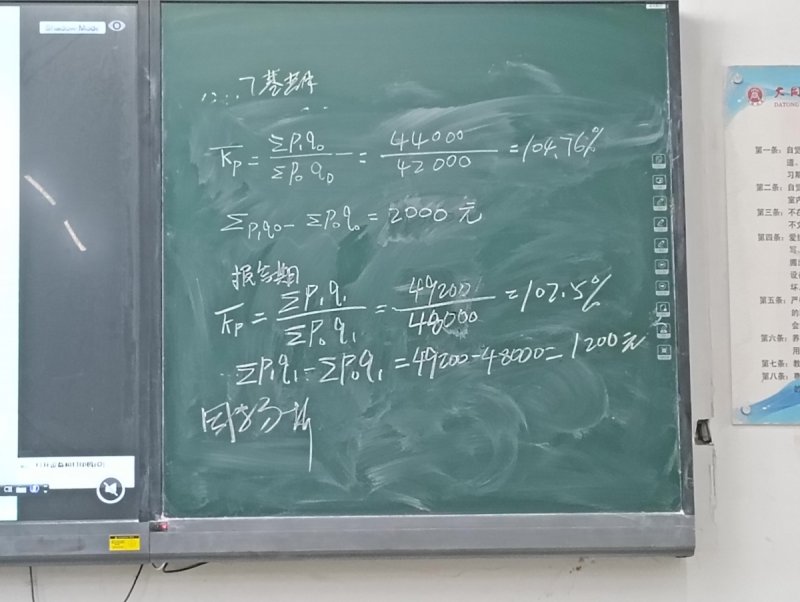 Shadow Mode
基期
K̅p = Σp₁q₀/Σp₀q₀ = 44000/42000 = 104.76%
Σp₁q₀ - Σp₀q₀ = 2000元
报告期
K̅p = Σp₁q₁/Σp₀q₁ = 49200/48000 = 102.5%
Σp₁q₁ - Σp₀q₁ = 49200 - 48000 = 1200元
因素分析
DATONG
第一条：自觉
道、
习期
第二条：自觉
室内
第三条：不在
不文
第四条：爱护
写、
设备
坏、
第五条：严
的
会
第六条：养
用
第七条：教
第八条：尊